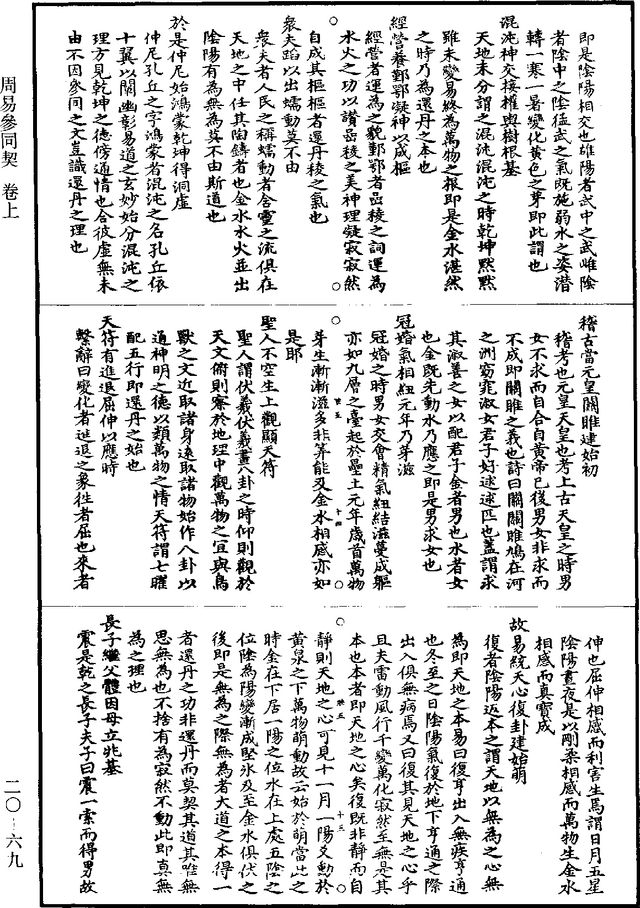 周易參同契　卷上
二〇—六九
即是陰陽相交也雄陽者武中之武雌陰
者陰中之陰猛武之氣既施弱水之姿潛
轉一寒一暑變化黄色之芽即此謂也
混沌神交接權與樹根基
天地未分謂之混沌混沌之時乾坤黙黙
雖未變易終為萬物之根即是金水湛然
之時乃為還丹之本也
經營養鄞鄂凝神以成樞
經營者運為之貌鄞鄂者㟁稜之詞運為
水火之功以讃㟁稜之美神理凝寂寂然
自成其樞樞者還丹稜之氣也
衆夫蹈以出蠕動莫不由
衆夫者人民之稱蠕動者含靈之流俱在
天地之中任其陶鑄者也金水水火並出
陰陽有為無為莫不由斯道也
於是仲尼始鴻蒙乾坤得洞虛
仲尼孔丘之字鴻蒙者混沌之名孔丘依
十翼以闡幽彰易道之玄妙始分混沌之
理方見乾坤之德傍通情也合彼虛無未
由不因參同之文豈識還丹之理也
稽古當元皇關雎建始初
稽考也元皇天皇也考上古天皇之時男
女不求而自合自黄帝已後男女非求而
不成即關雎之義也詩曰關關雎鳩在河
之洲窈窕淑女君子好逑逑匹也蓋謂求
其淑善之女以配君子金者男也水者女
也金既先動水乃應之即是男求女也
冠婚氣相紐元年乃芽滋
冠婚之時男女交會精氣紐結滋蔓成軀
亦如九層之臺起於壘土元年歲首萬物
芽生漸漸滋多非筭能及金水相感亦如
是耶
聖人不空生上觀顯天符
聖人謂伏羲伏羲畫八卦之時仰則觀於
天文俯則察於地理中觀萬物之宜與鳥
獸之文近取諸身遠取諸物始作八卦以
通神明之德以類萬物之情天符謂七曜
配五行即還丹之始也
天符有進退屈伸以應時
繫辭曰變化者進退之象徃者屈也來者
伸也屈伸相感而利害生焉謂日月五星
陰陽晝夜是以剛柔相感而萬物生金水
相感而真寳成
故易統天心復卦建始萌
復者陰陽返本之謂天地以無為之心無
為即天地之本易曰復亨出入無疾亨通
也冬至之日陰陽氣復於地下亨通之際
出入俱無病焉又曰復其見天地之心乎
且夫雷動風行千變萬化寂然至無是其
本也本者即天地之心矣復既非靜而自
靜則天地之心可見十一月一陽爻動於
黄泉之下萬物萌動故云始於萌當此之
時金在下居一陽之位水在上處五陰之
位陰為陽變漸成堅氷及至金水俱伏之
後即是無為之際無為者大道之本得一
者還丹之功非還丹而莫契其道其唯無
思無為也不捨有為寂然不動此即真無
為之理也
長子繼父體因母立兆基
震是乾之長子夫子曰震一索而得男故